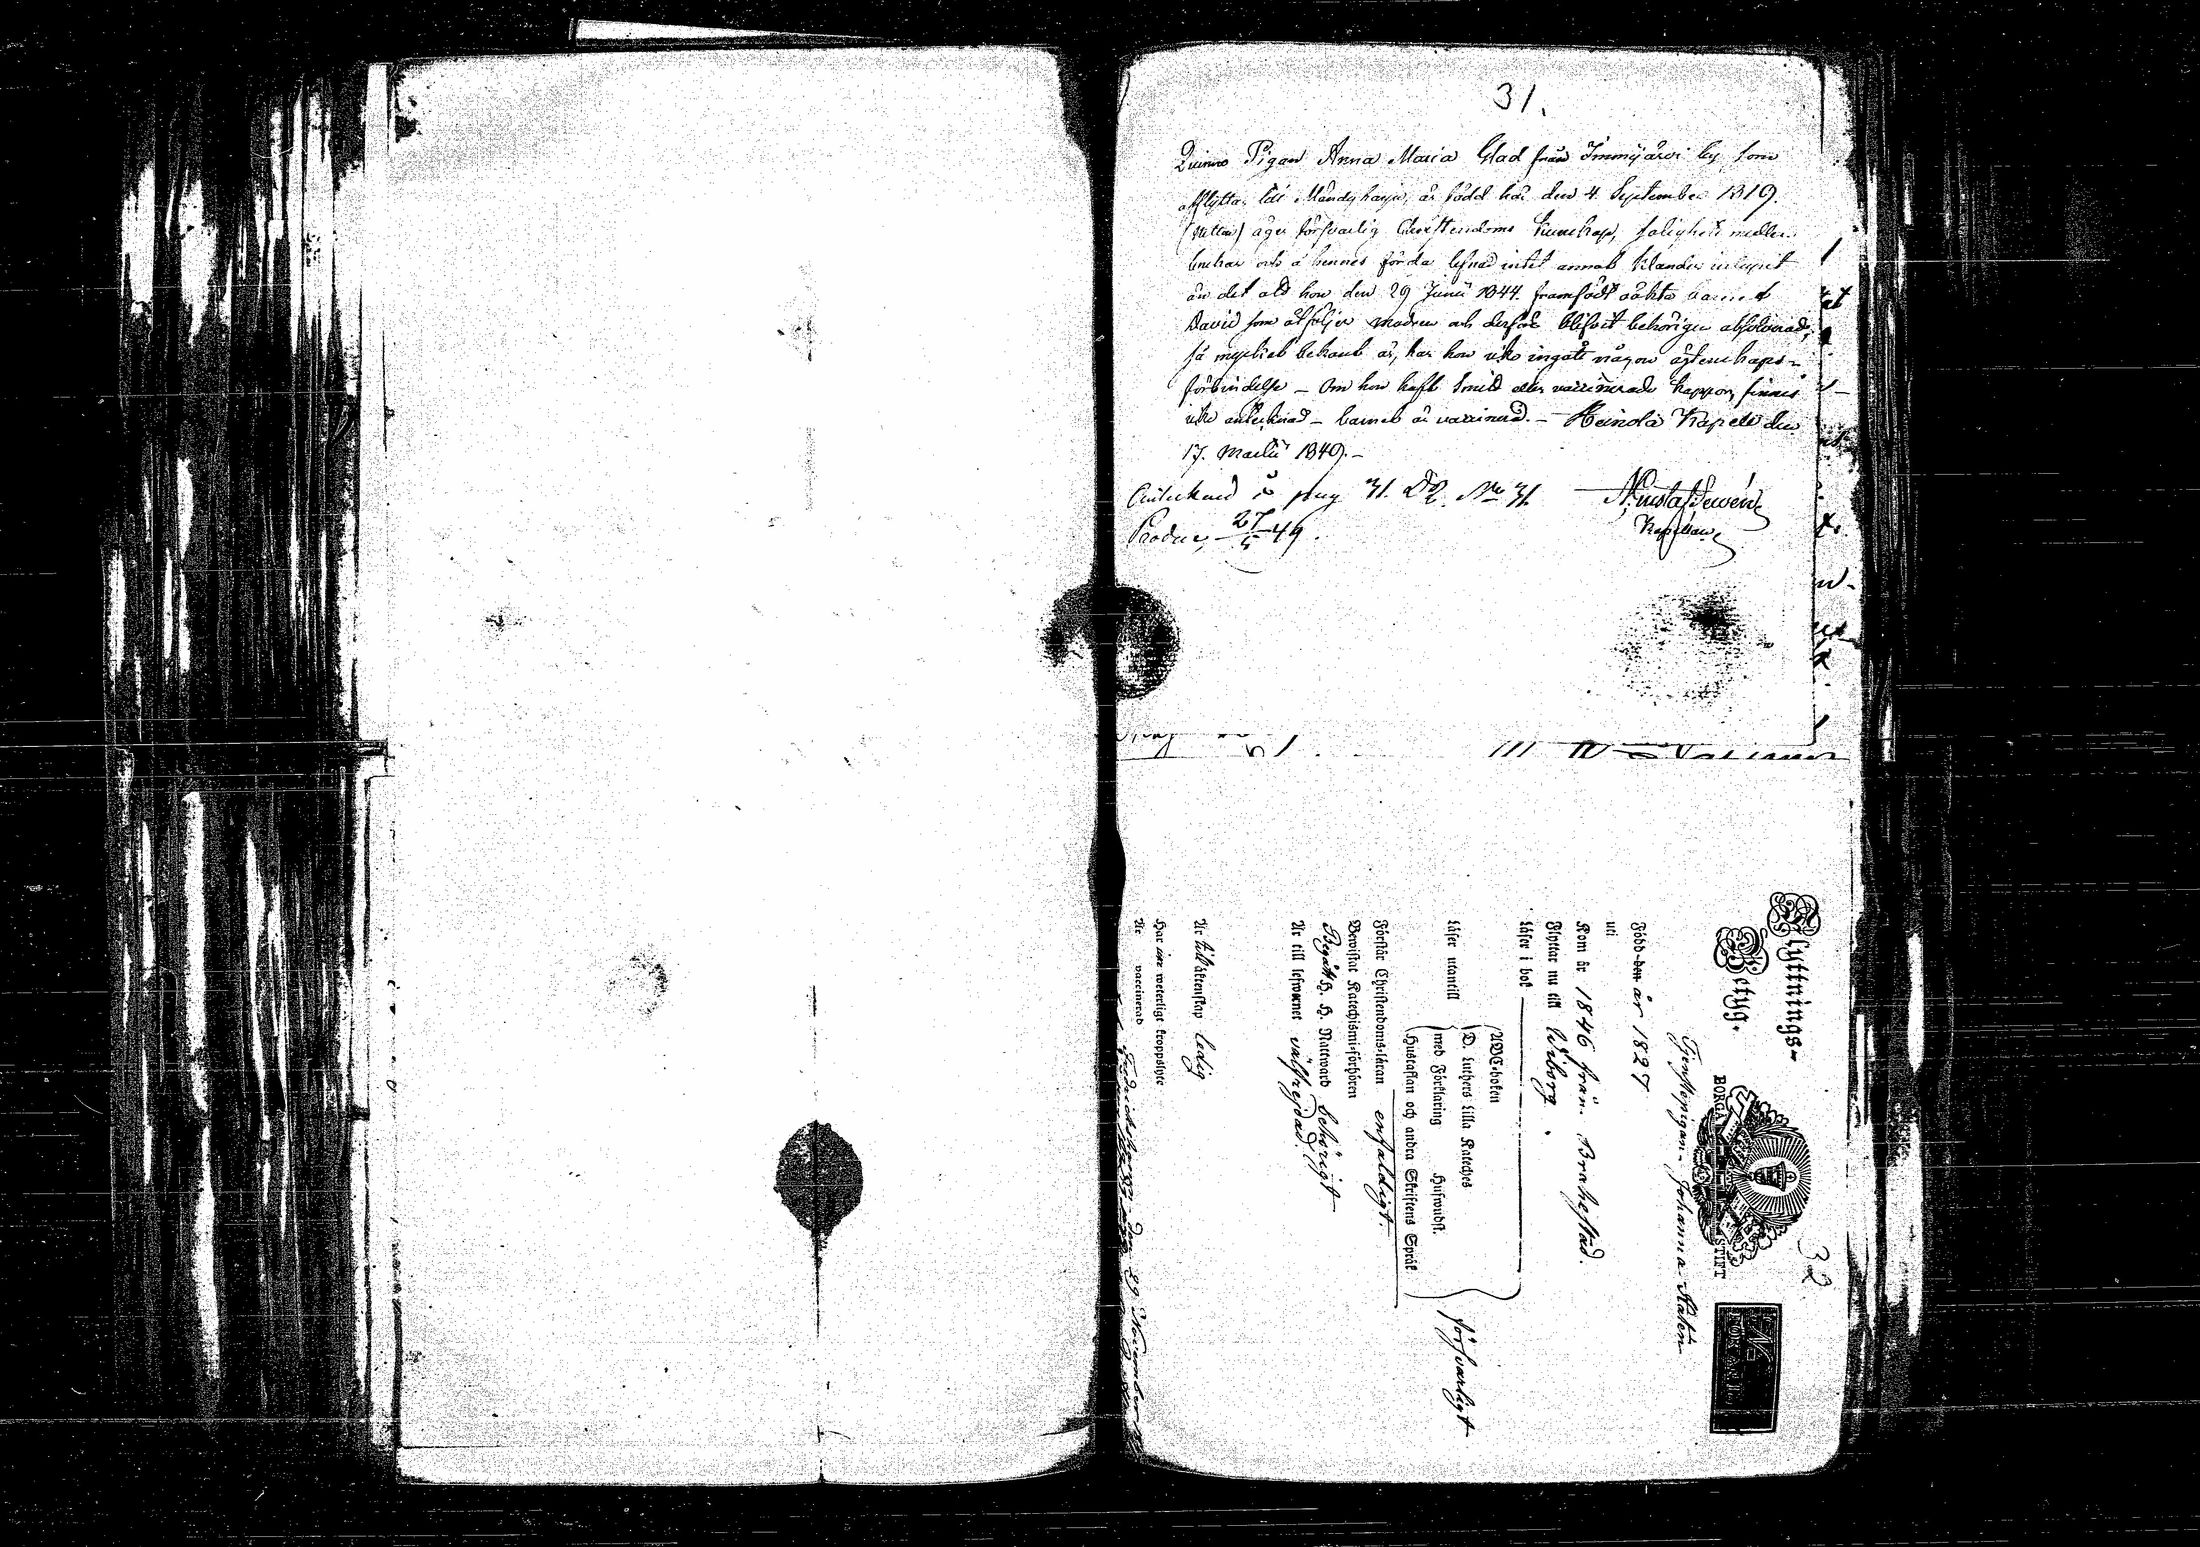 31.
Pigan Anna Maria Glad från Immjärvi by som
afflyttar till Mändyharju, är född här den 4 September 1819.
äger försvarlig Christendoms kunskap, salighets medlen
brukar och å hennes förda lefnad intet annat klander
än det att hon den 29 Junii 1844 framfödt oäkta barnet
David som åtföljer modren och derföre blifvit behörigen absolverad,
så mycket bekant är, har hon icke ingått någon ägtenskaps-
förbindelse – Om hon haft eller vaccinerade koppor, finnes
icke antecknad – barnet är vaccinerad. – Heinola Kapell den
17. Martii 1849. –
Antecknad å pag 31. No 31.
Gustaf
Kapellan
Produc. 27/5 49.
32
Flyttnings-
Betyg.
BORGÅ STIFT
Tjenstepigan Johanna
Född den år 1827
uti
Kom år 1846 från Brahestad.
Flyttar nu till Wiborg.
Läser i bok
Läser utantill
ABC-boken
D. Luthers Lilla Kateches
med Förklaring Husandst.
Hustaflan och andra Skriftens Språk
försvarligt
Förstår Christendoms-läran enfaldigt.
Bewistat Katechismi-förhören
Begått H. H. Nattward behörigt
Är till lefwernet välfrejdad.
Är till äktenskap ledig
Har weterligt koppsjuke
Är vaccinerad
Fredrikshamn den 29 November